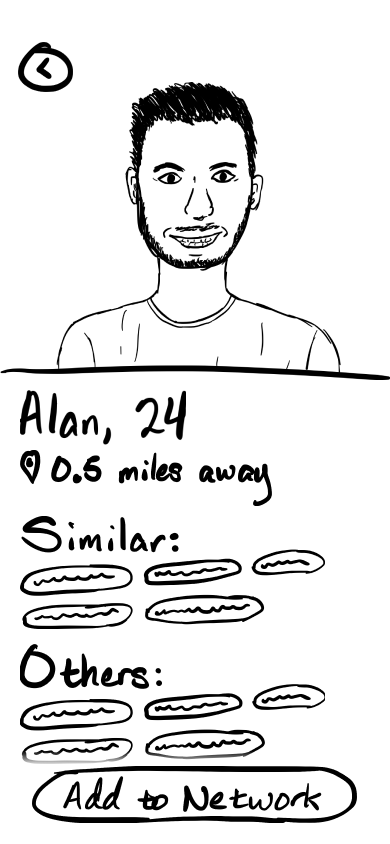 Alan, 24
0.5 miles away
Similar:
Others:
Add to Network